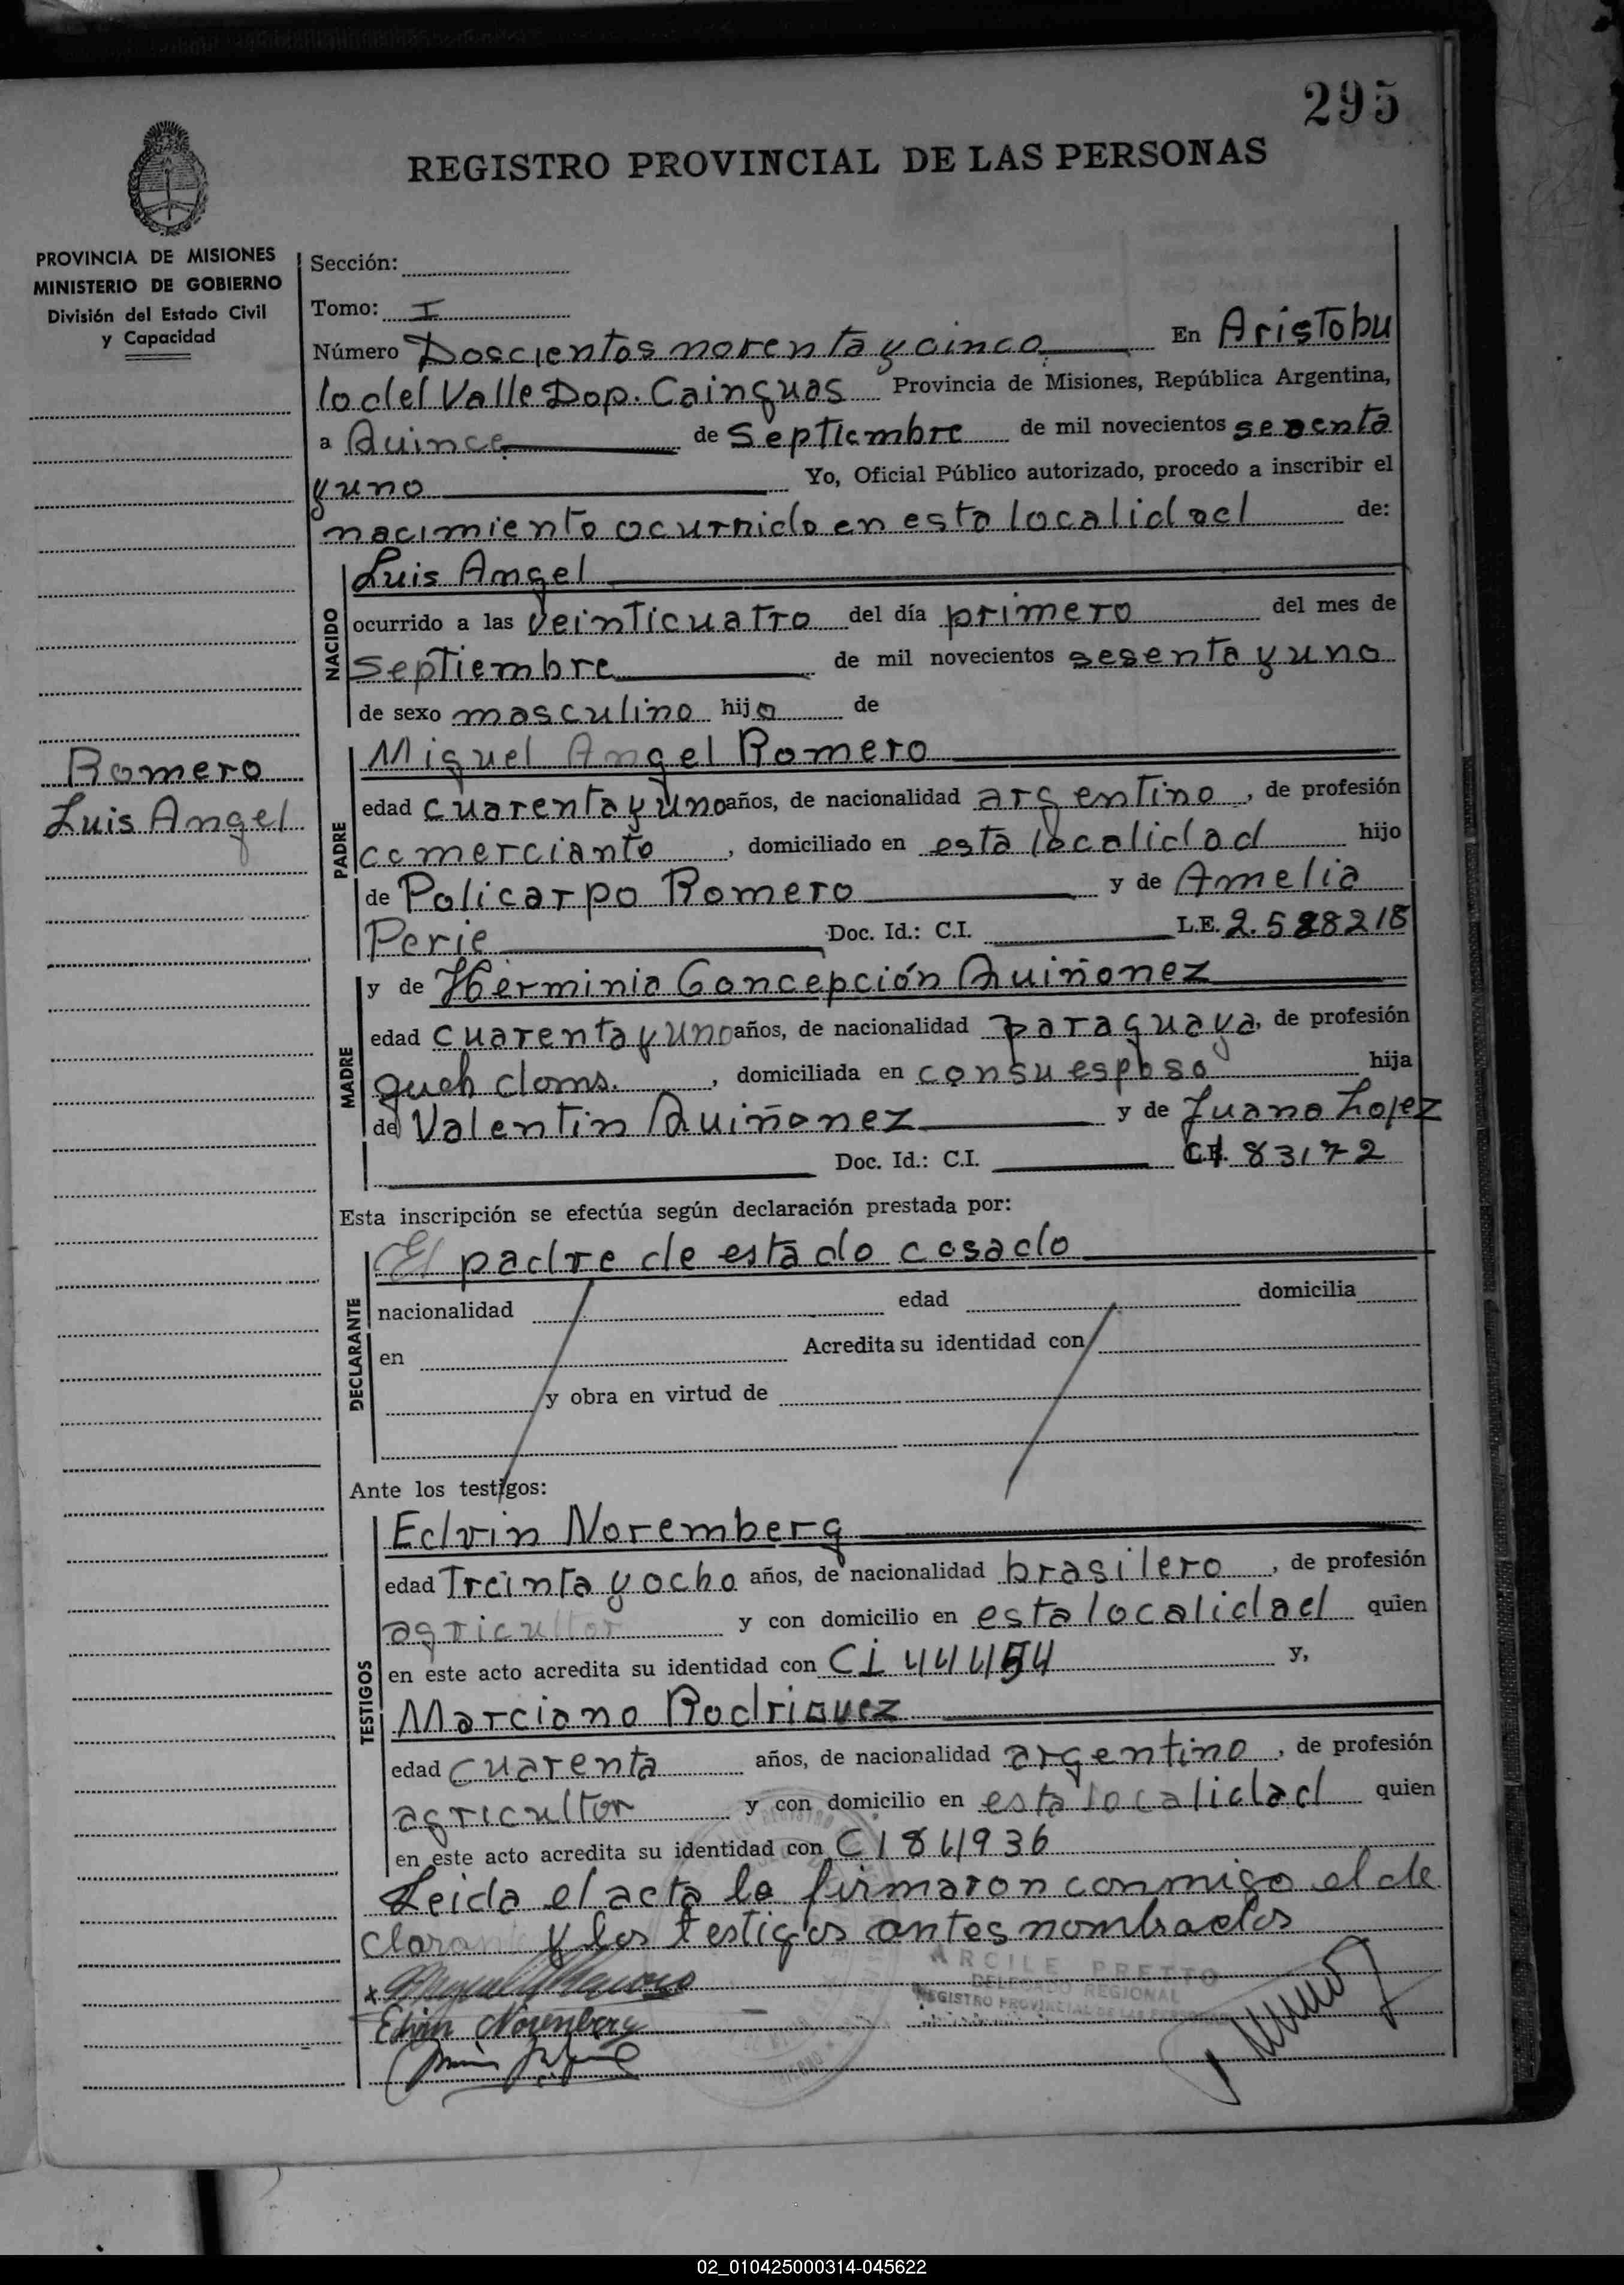 295
REGISTRO PROVINCIAL DE LAS PERSONAS
PROVINCIA DE MISIONES
MINISTERIO DE GOBIERNO
División del Estado Civil
y Capacidad
Sección:
Tomo: I
Número Doscientos noventa y cinco En Aristobu
lo del Valle Dop. Cainguas Provincia de Misiones, República Argentina,
a Quince de Septiembre de mil novecientos sesenta
y uno Yo, Oficial Público autorizado, procedo a inscribir el
nacimiento ocurrido en esta localidad de:
NACIDO
Luis Angel
ocurrido a las veinticuatro del día primero del mes de
Septiembre de mil novecientos sesenta y uno
de sexo masculino hijo de
Romero
Luis Angel
PADRE
Miguel Angel Romero
edad cuarenta y uno años, de nacionalidad argentino, de profesión
comerciante, domiciliado en esta localidad hijo
de Policarpo Romero y de Amelia
Perie Doc. Id.: C.I. L.E. 2.588218
MADRE
y de Herminia Concepción Quiñonez
edad cuarenta y uno años, de nacionalidad paraguaya, de profesión
queh doms., domiciliada en con su esposo hija
de Valentin Quiñonez y de Juana Lopez
Doc. Id.: C.I. C.I. 83172
Esta inscripción se efectúa según declaración prestada por:
DECLARANTE
El padre de estado casado
nacionalidad edad domicilia
en Acredita su identidad con
y obra en virtud de
Ante los testigos:
TESTIGOS
Edvin Noremberg
edad Treinta y ocho años, de nacionalidad brasilero, de profesión
agricultor y con domicilio en esta localidad quien
en este acto acredita su identidad con CI 444454 y,
Marciano Rodriguez
edad cuarenta años, de nacionalidad argentino, de profesión
agricultor y con domicilio en esta localidad quien
en este acto acredita su identidad con CI 84936
Leida el acta la firmaron conmigo el de
clarante y los testigos antes nombrados
Edvin Norenberg
ARCILE PRETTO
DELEGADO REGIONAL
REGISTRO PROVINCIAL DE LAS PERSONAS
02_010425000314-045622